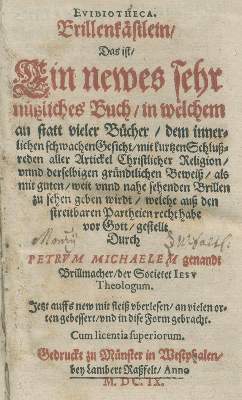 EVIBIOTHECA.
Brillenkåſtlein/
Das iſt/
Ein newes ſehr
nůtzliches Buch/ in welchem
an ſtatt vieler Bůcher/ dem inner-
lichen ſchwachen Geſicht/ mit kurtzen Schluß-
reden aller Artickel Chriſtlicher Religion/
vnnd derſelbigen gründtlichen Beweiß/ als
mit guten/ weit vnnd nahe ſehenden Brillen
zu ſehen geben wirdt/ welche auß den
ſtreitbaren Partheien recht habe
vor Gott/ geſtellt
Durch
PETRVM MICHAELEM genandt
Brillmacher/ der Societet IESV
Theologum.
Jetzt auffs new mit fleiß vberleſen/ an vielen or-
ten gebeſſert/ vnd in diſe Form gebracht.
Cum licentia ſuperiorum.
Gedruckt zu Můnſter in Weſtphalen/
bey Lambert Raßfelt/ Anno
M. DC. IX.